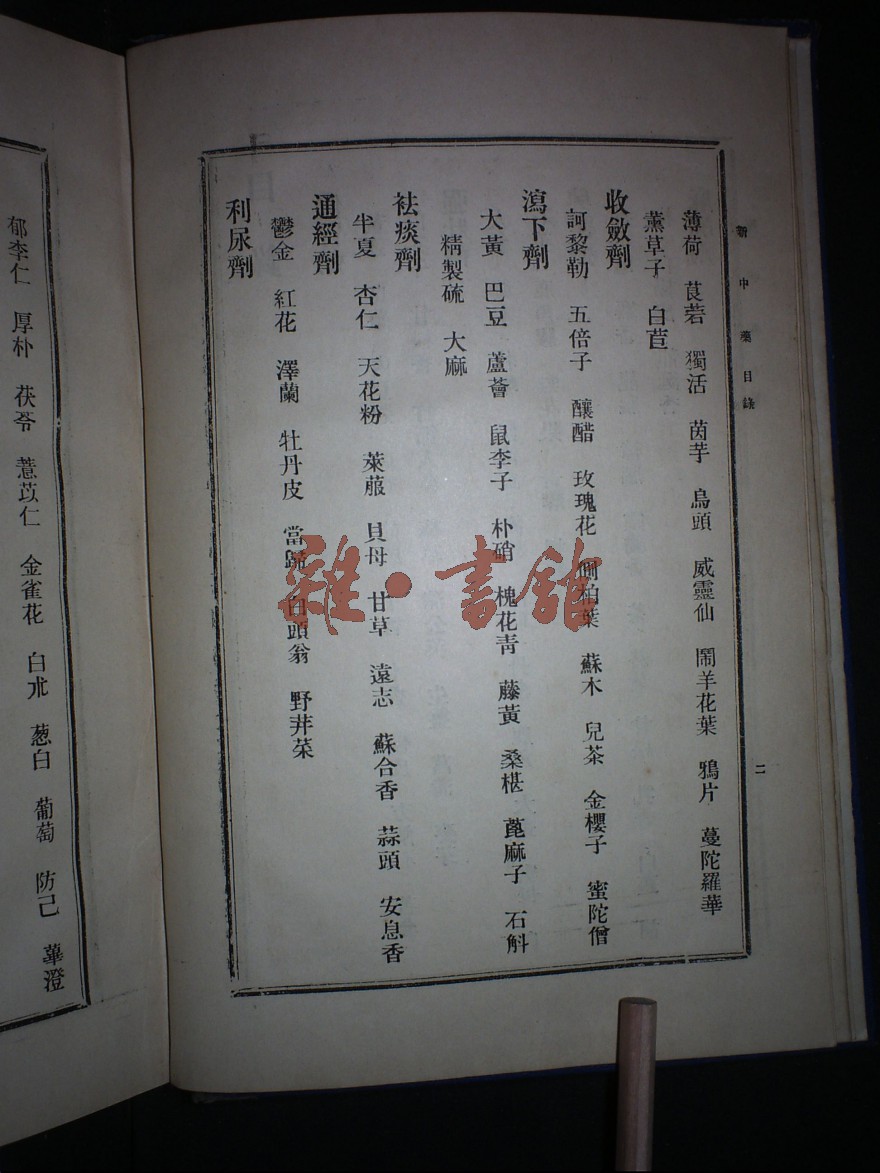 新中藥目錄
二
薄荷 莨菪 獨活 茵芋 烏頭 威靈仙 鬧羊花葉 鴉片 蔓陀羅華
薰草子 白苣
收斂劑
訶黎勒 五倍子 釀醋 玫瑰花 側柏葉 蘇木 兒茶 金櫻子 蜜陀僧
瀉下劑
大黃 巴豆 蘆薈 鼠李子 朴硝 槐花青 藤黃 桑椹 蓖麻子 石斛
精製硫 大麻
祛痰劑
半夏 杏仁 天花粉 萊菔 貝母 甘草 遠志 蘇合香 蒜頭 安息香
通經劑
鬱金 紅花 澤蘭 牡丹皮 當歸 白頭翁 野茾菜
利尿劑
郁李仁 厚朴 茯苓 薏苡仁 金雀花 白朮 葱白 葡萄 防己 蓽澄
雜·書館